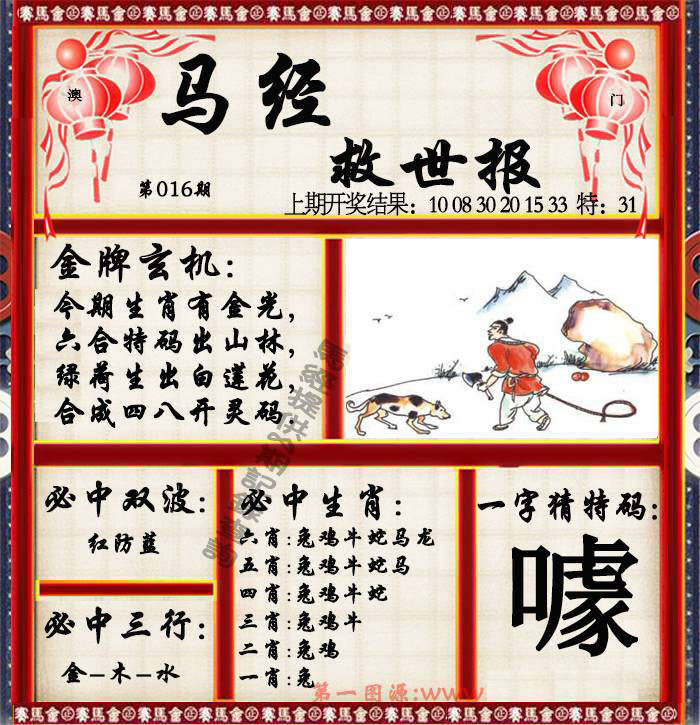 賽馬會 賽馬會 賽馬會 賽馬會 賽馬會 賽馬會 賽馬會
澳 门
马经
救世报
第016期
上期开奖结果：10 08 30 20 15 33 特：31
金牌玄机：
今期生肖有金光，
六合特码出山林，
绿荷生出白莲花，
合成四八开灵码.
必中双波：
红防蓝
必中三行：
金-木-水
必中生肖：
六肖:兔鸡牛蛇马龙
五肖:兔鸡牛蛇马
四肖:兔鸡牛蛇
三肖:兔鸡牛
二肖:兔鸡
一肖:兔
一字猜特码：
噱
第一图源:www